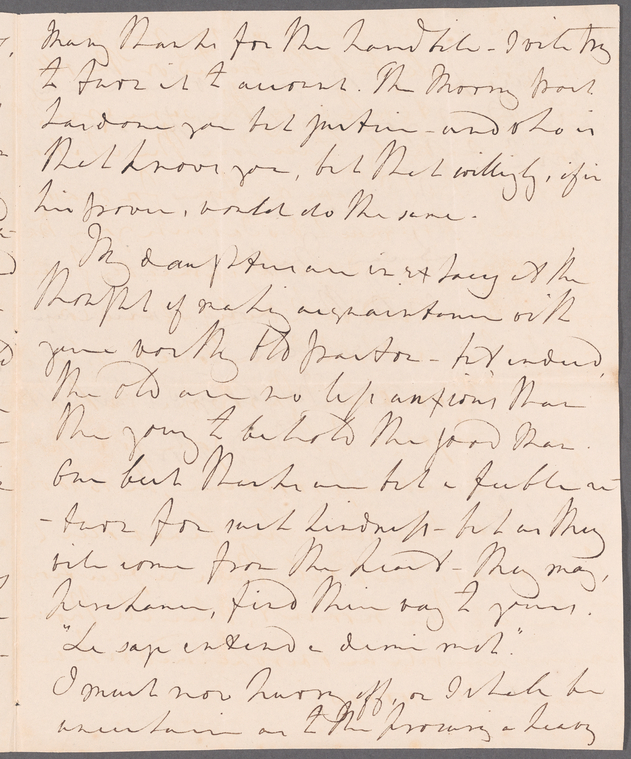 Many thanks for the handbill - I will try
to turn it to account. The Morning Post
has done you but justice - and who is
that knows you, but that willingly, if in
his power, would do the same.
My daughters are in extacy at the
thought of making acquaintance with
your worthy old - but indeed,
the old are no less anxious than
the young to behold the good man.
Our best thanks are but a feeble re-
-turn for such kindness - but as they
will come from the heart - they may,
perchance, find their way to yours.
"Le sage entend a demi mot."
I must now hurry off, or I shall be
uncertain as to the procuring a heavy